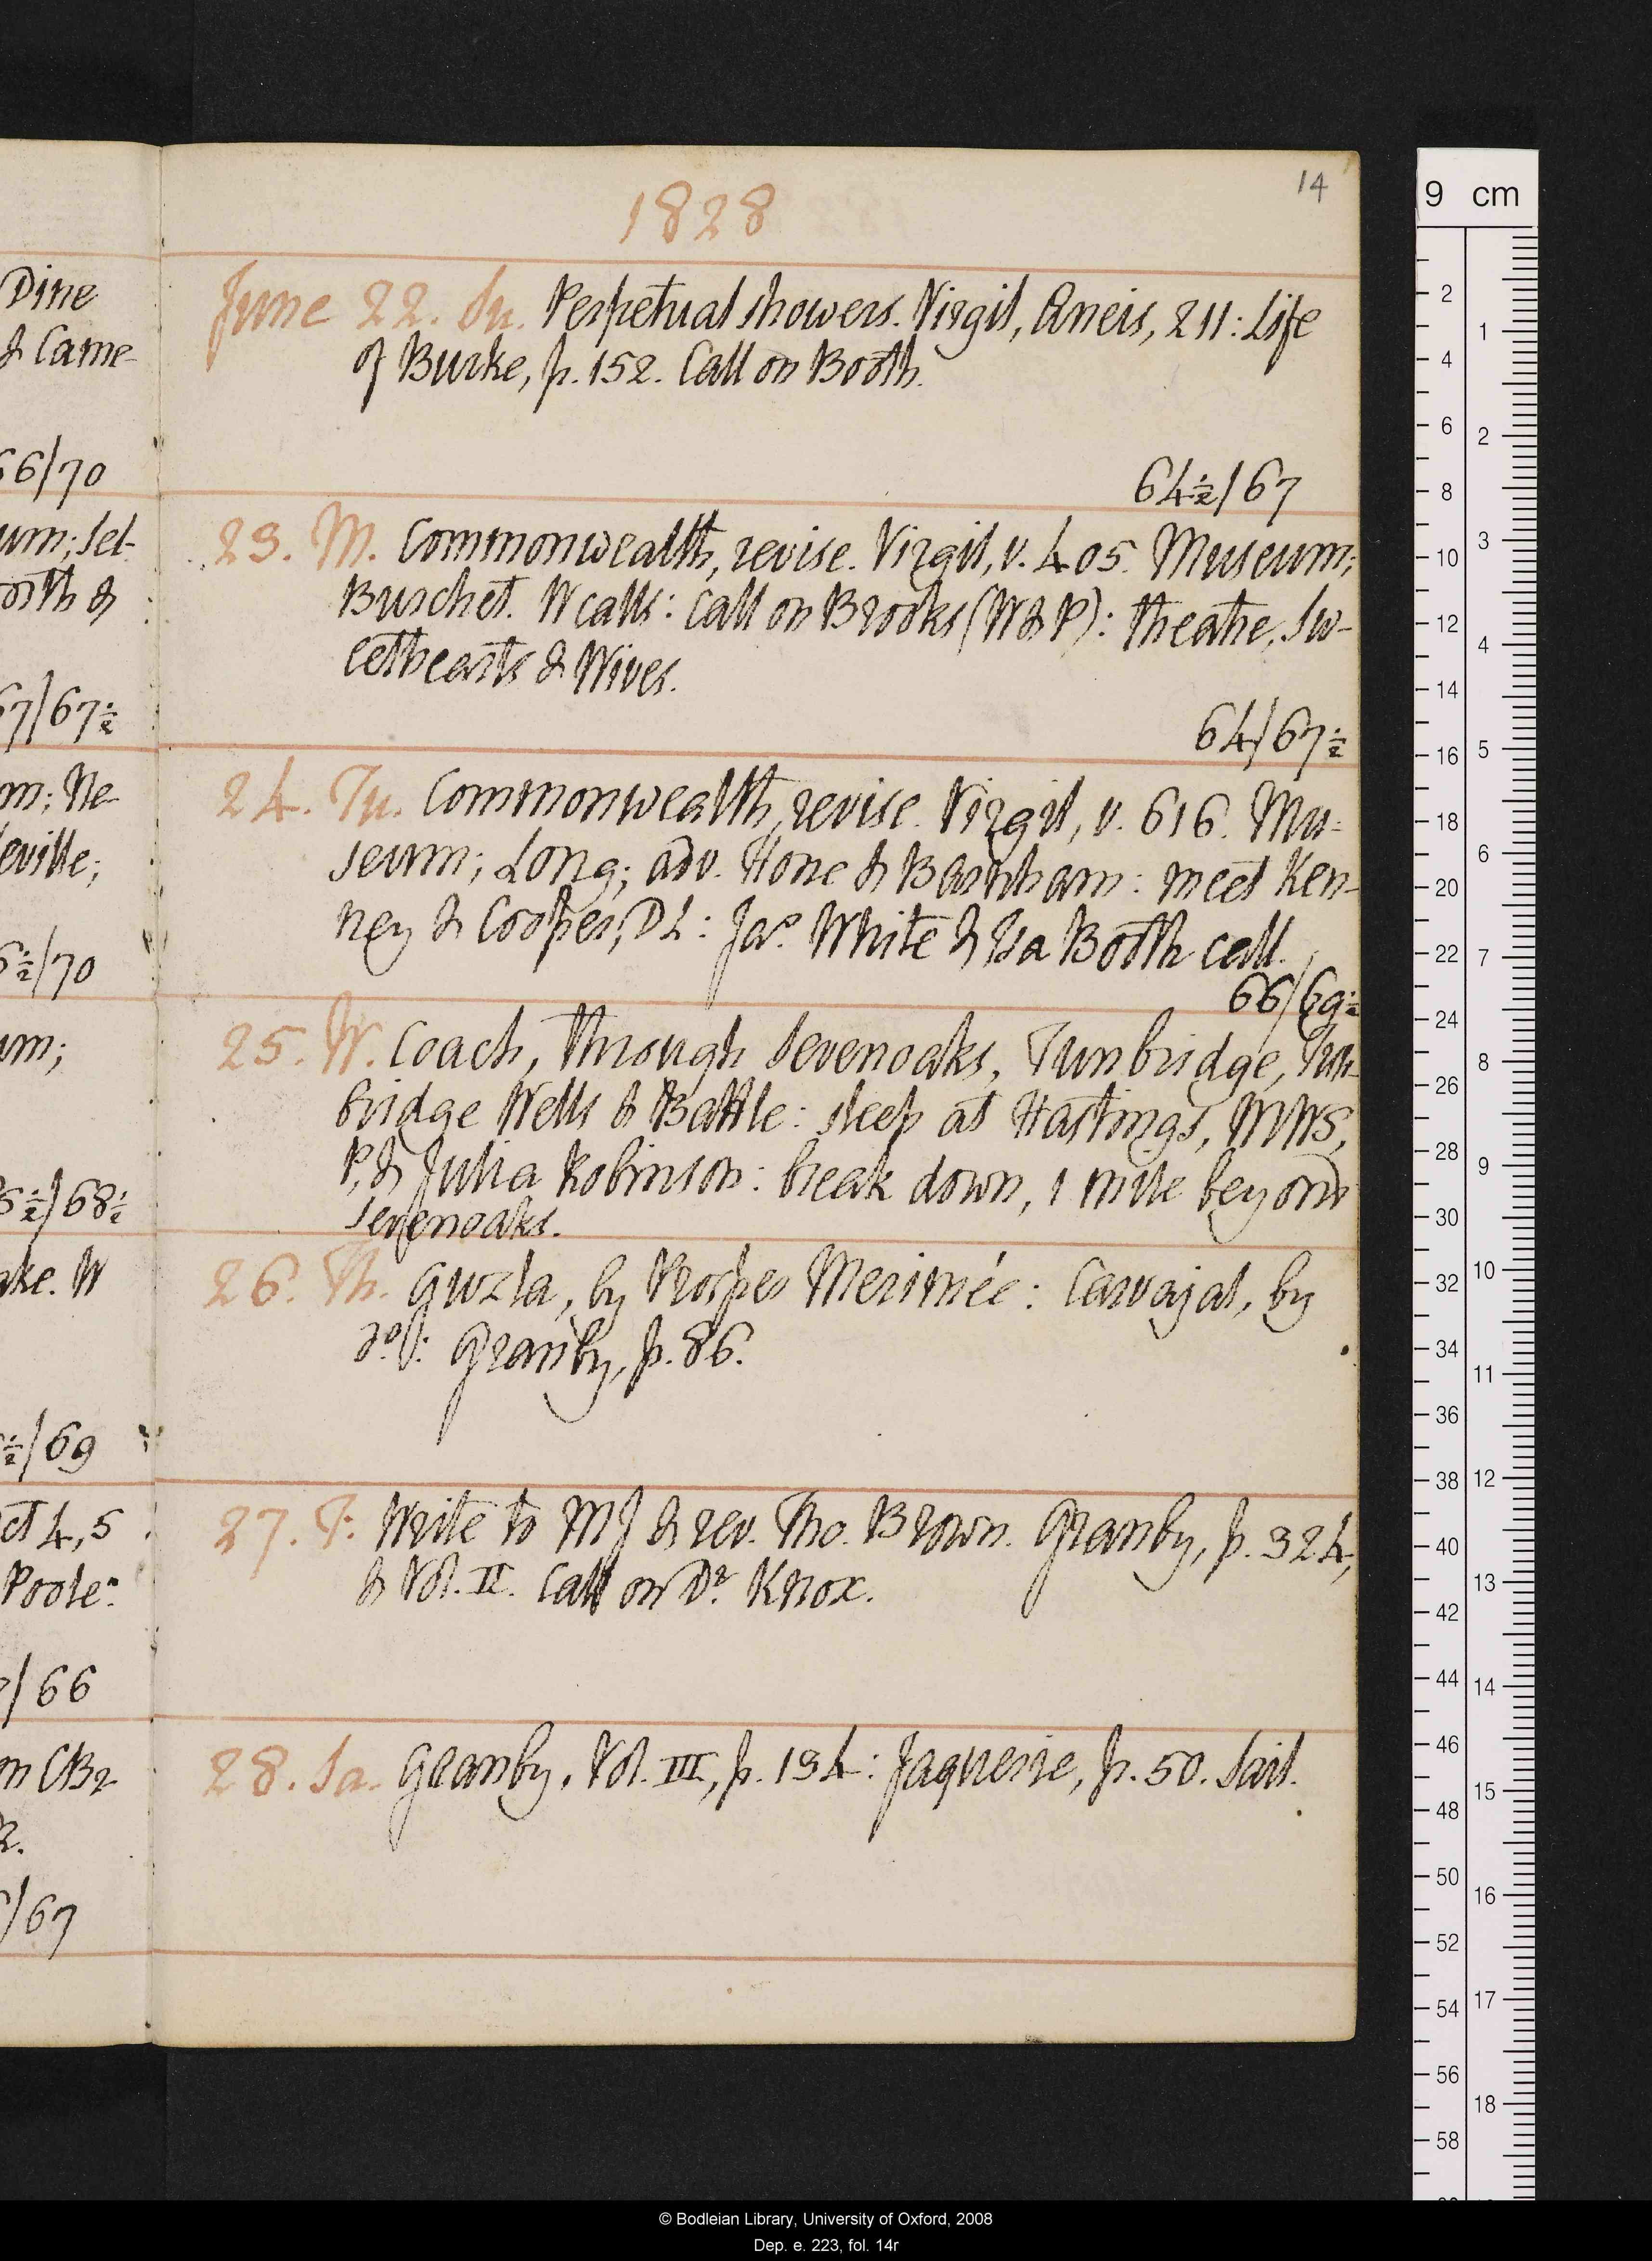 Dine
& Came-
66/70
um; Sel-
orth &
67/67½
m; Ne-
eville;
6½/70
um;
6½/68½
ake. W
½/69
ct 4, 5
Poole:
/66
m CB2
2.
/67
14
1828
June 22. Su. Perpetual showers. Virgil, Æneis, 211: Life
of Burke, p. 152. Call on Booth.
64½/67
23. M. Commonwealth, revise. Virgil, v. 405. Museum;
Burchet. W calls: call on Brooks (W & P): theatre, Sw-
eethearts & Wives.
64/67½
24. Tu. Commonwealth, revise. Virgil, v. 616. Mu-
seum; Long; adv. Hone & Barnham: meet Ken-
ney & Cooper, DL: Jas. White & Isa Booth call.
66/69½
25. W. Coach, through Sevenoaks, Tunbridge, Tun-
bridge Wells & Battle: sleep at Hastings, MWS,
P, & Julia Robinson: break down, 1 mile beyond
Sevenoaks.
26. Th. Guzla, by Prosper Merimée: Carvajal, by
do.: Granby, p. 86.
27. F. Write to MJ & rev. Tho. Brown. Granby, p. 324,
& Vol. II. Call on Dr. Knox.
28. Sa. Granby, Vol. III, p. 134: Jaquerie, p. 50. Sail.
9 cm
2
4
6
8
10
12
14
16
18
20
22
24
26
28
30
32
34
36
38
40
42
44
46
48
50
52
54
56
58
1
2
3
4
5
6
7
8
9
10
11
12
13
14
15
16
17
18
© Bodleian Library, University of Oxford, 2008
Dep. e. 223, fol. 14r